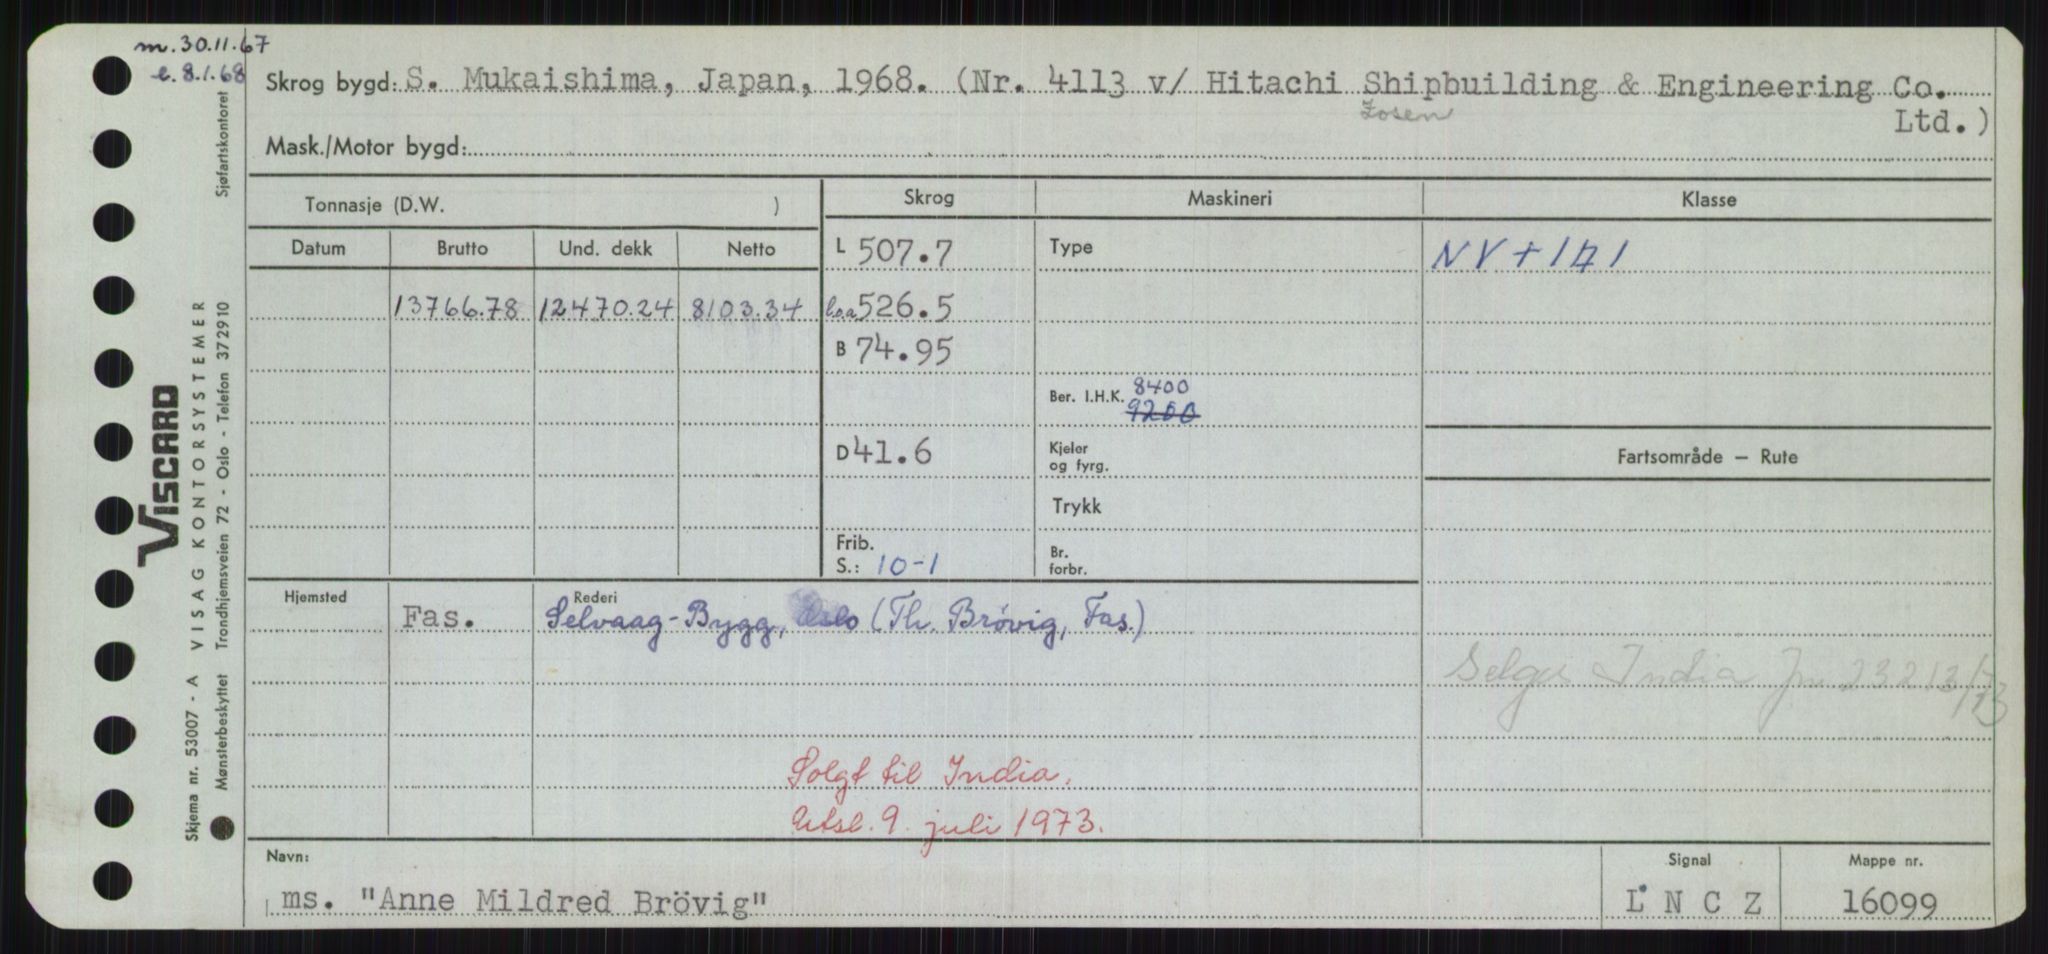 m. 30.11.67
e. 8.1.68
Skrog bygd: S. Mukaishima, Japan, 1968. (Nr. 4113 v/ Hitachi Shipbuilding & Engineering Co.
Zosen
Ltd.)
Mask./Motor bygd:
Tonnasje (D.W. )
Skrog
Maskineri
Klasse
Datum
Brutto
Und. dekk
Netto
L 507.7
Type
NV + 1A1
13766.78
12470.24
8103.34
loa 526.5
B 74.95
Ber. I.H.K. 8400
9200
D 41.6
Kjeler
og fyrg.
Fartsområde – Rute
Trykk
Frib.
S.: 10-1
Br.
forbr.
Hjemsted
Rederi
Fas.
Selvaag-Bygg, Oslo (Th. Brövig, Fas.)
India
Solgt til India.
Utsl. 9. juli 1973.
Navn:
ms. "Anne Mildred Brövig"
Signal
L N C Z
Mappe nr.
16099
Sjøfartskontoret
VISCARD
VISAG KONTORSYSTEMER
Trondhjemsveien 72 - Oslo - Telefon 372910
Skjema nr. 53007 - A
Mønsterbeskyttet